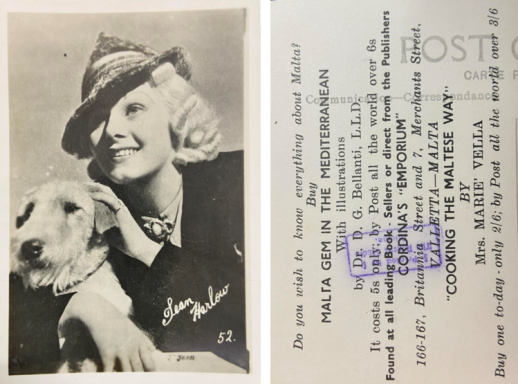 Jean Harlow
52.
POST
CARTE P
Communication—Correspondance
Do you wish to know everything about Malta?
Buy
MALTA GEM IN THE MEDITERRANEAN
With illustrations
by Dr. D. G. Bellanti, L.L.D.
It costs 5s only; by Post all the world over 6s
Found at all leading Book-Sellers or direct from the Publishers
CORDINA'S "EMPORIUM"
166-167, Britannia Street and 7, Merchants Street,
VALLETTA—MALTA
"COOKING THE MALTESE WAY"
BY
Mrs. MARIE VELLA
Buy one to-day - only 2/6; by Post all the world over 3/6